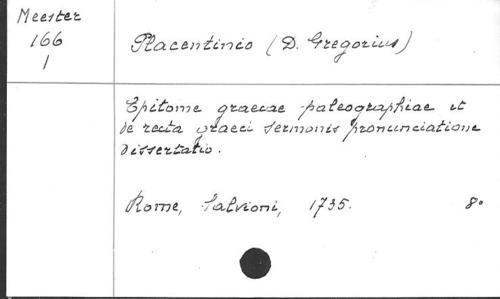 Meester
166
1
Placentinio (D. Gregorius)
Epitome graecae paleographiae et
de recta graeci sermonis pronunciatione
dissertatio.
Rome, Salvioni, 1735. 8º